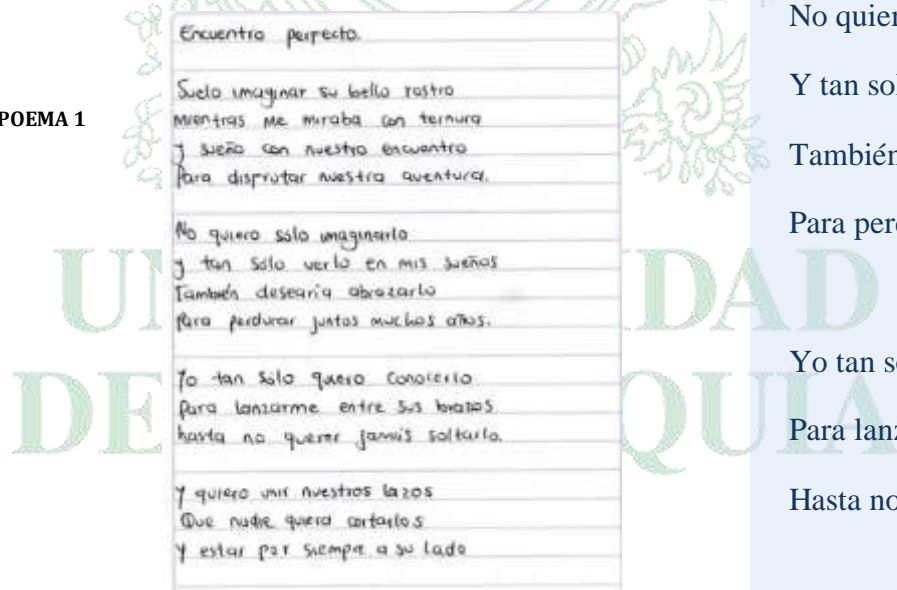 POEMA 1
Encuentro perfecto.
Suelo imaginar su bello rostro
mientras me miraba con ternura
y sueño con nuestro encuentro
Para disfrutar nuestra aventura.
No quiero sólo imaginarlo
y tan sólo verlo en mis sueños
También desearía abrazarlo
Para perdurar juntos muchos años.
Yo tan sólo quiero conocerlo
Para lanzarme entre sus brazos
hasta no querer jamás soltarlo.
Y quiero unir nuestros lazos
Que nadie quiera cortarlos
Y estar por siempre a su lado
No quier
Y tan sol
También
Para per
Yo tan s
Para lanz
Hasta no
DAD
DE QUIA